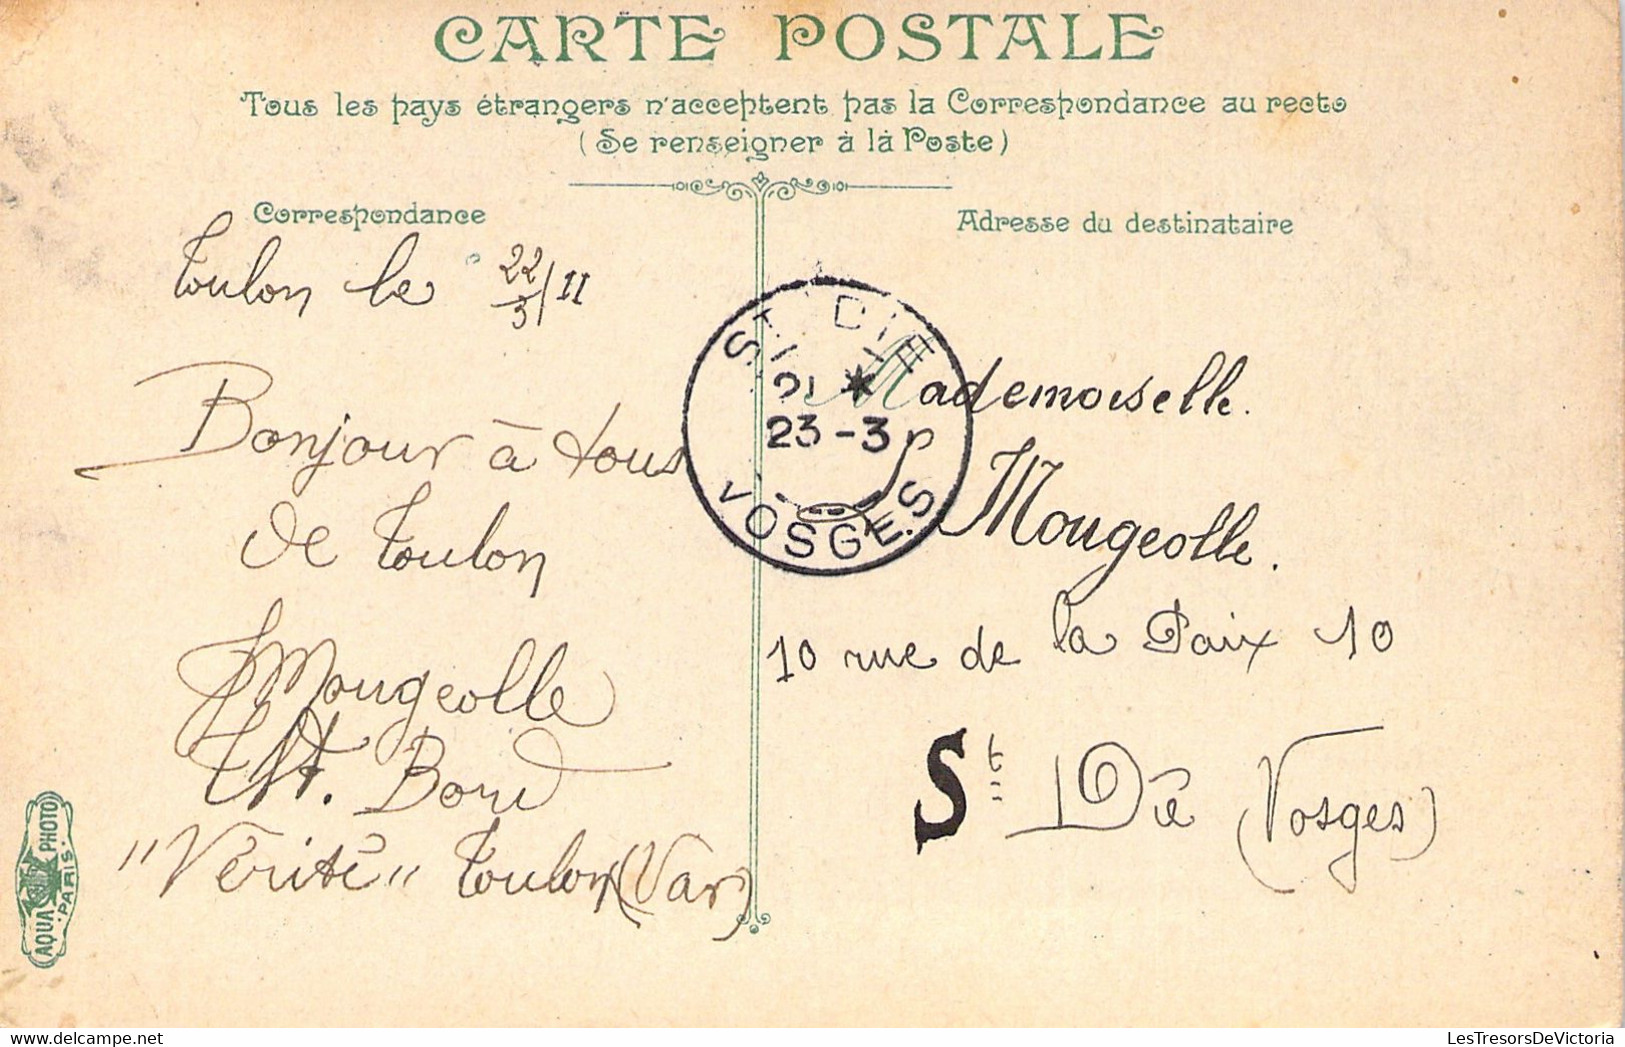 CARTE POSTALE
Tous les pays étrangers n'acceptent pas la Correspondance au recto
(Se renseigner à là Poste)
Correspondance
Toulon le 22/3/11
Bonjour à tous
de Toulon
Mougeolle
Bord
"Vérité" Toulon (Var)
AQUA PHOTO
PARIS
ST DIE
23-3
VOSGES
Adresse du destinataire
Mademoiselle.
Mougeolle.
10 rue de la Paix 10
St Dié (Vosges)
LesTresorsDeVictoria